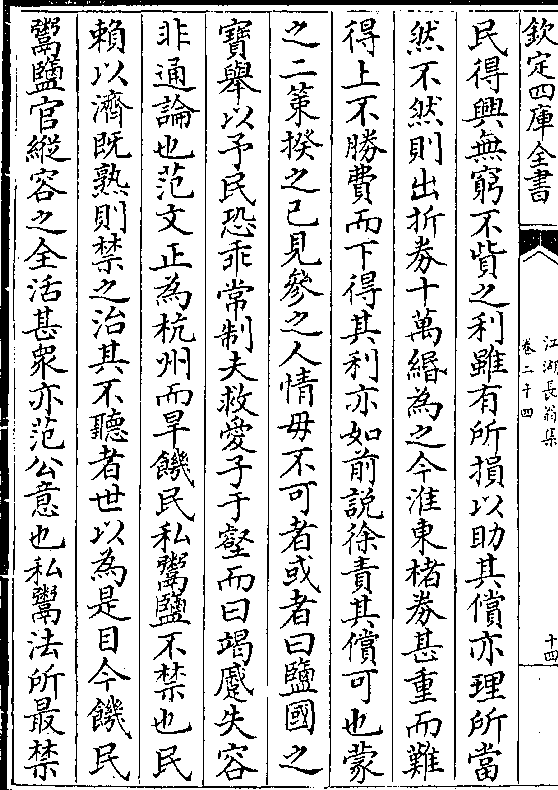 欽定四庫全書
江湖長翁集
卷二十四
十四
民得興無窮不貲之利雖有所損以助其償亦理所當
然不然則出折券十萬緡為之今淮東楮券甚重而難
得上不勝費而下得其利亦如前說徐責其償可也蒙
之二策揆之己見參之人情毋不可者或者曰鹽國之
寳舉以予民恐乖常制夫救愛子于壑而曰竭蹷失容
非通論也范文正為杭州而旱饑民私鬻鹽不禁也民
賴以濟既熟則禁之治其不聽者世以為是目今饑民
鬻鹽官縱容之全活甚衆亦范公意也私鬻法所最禁